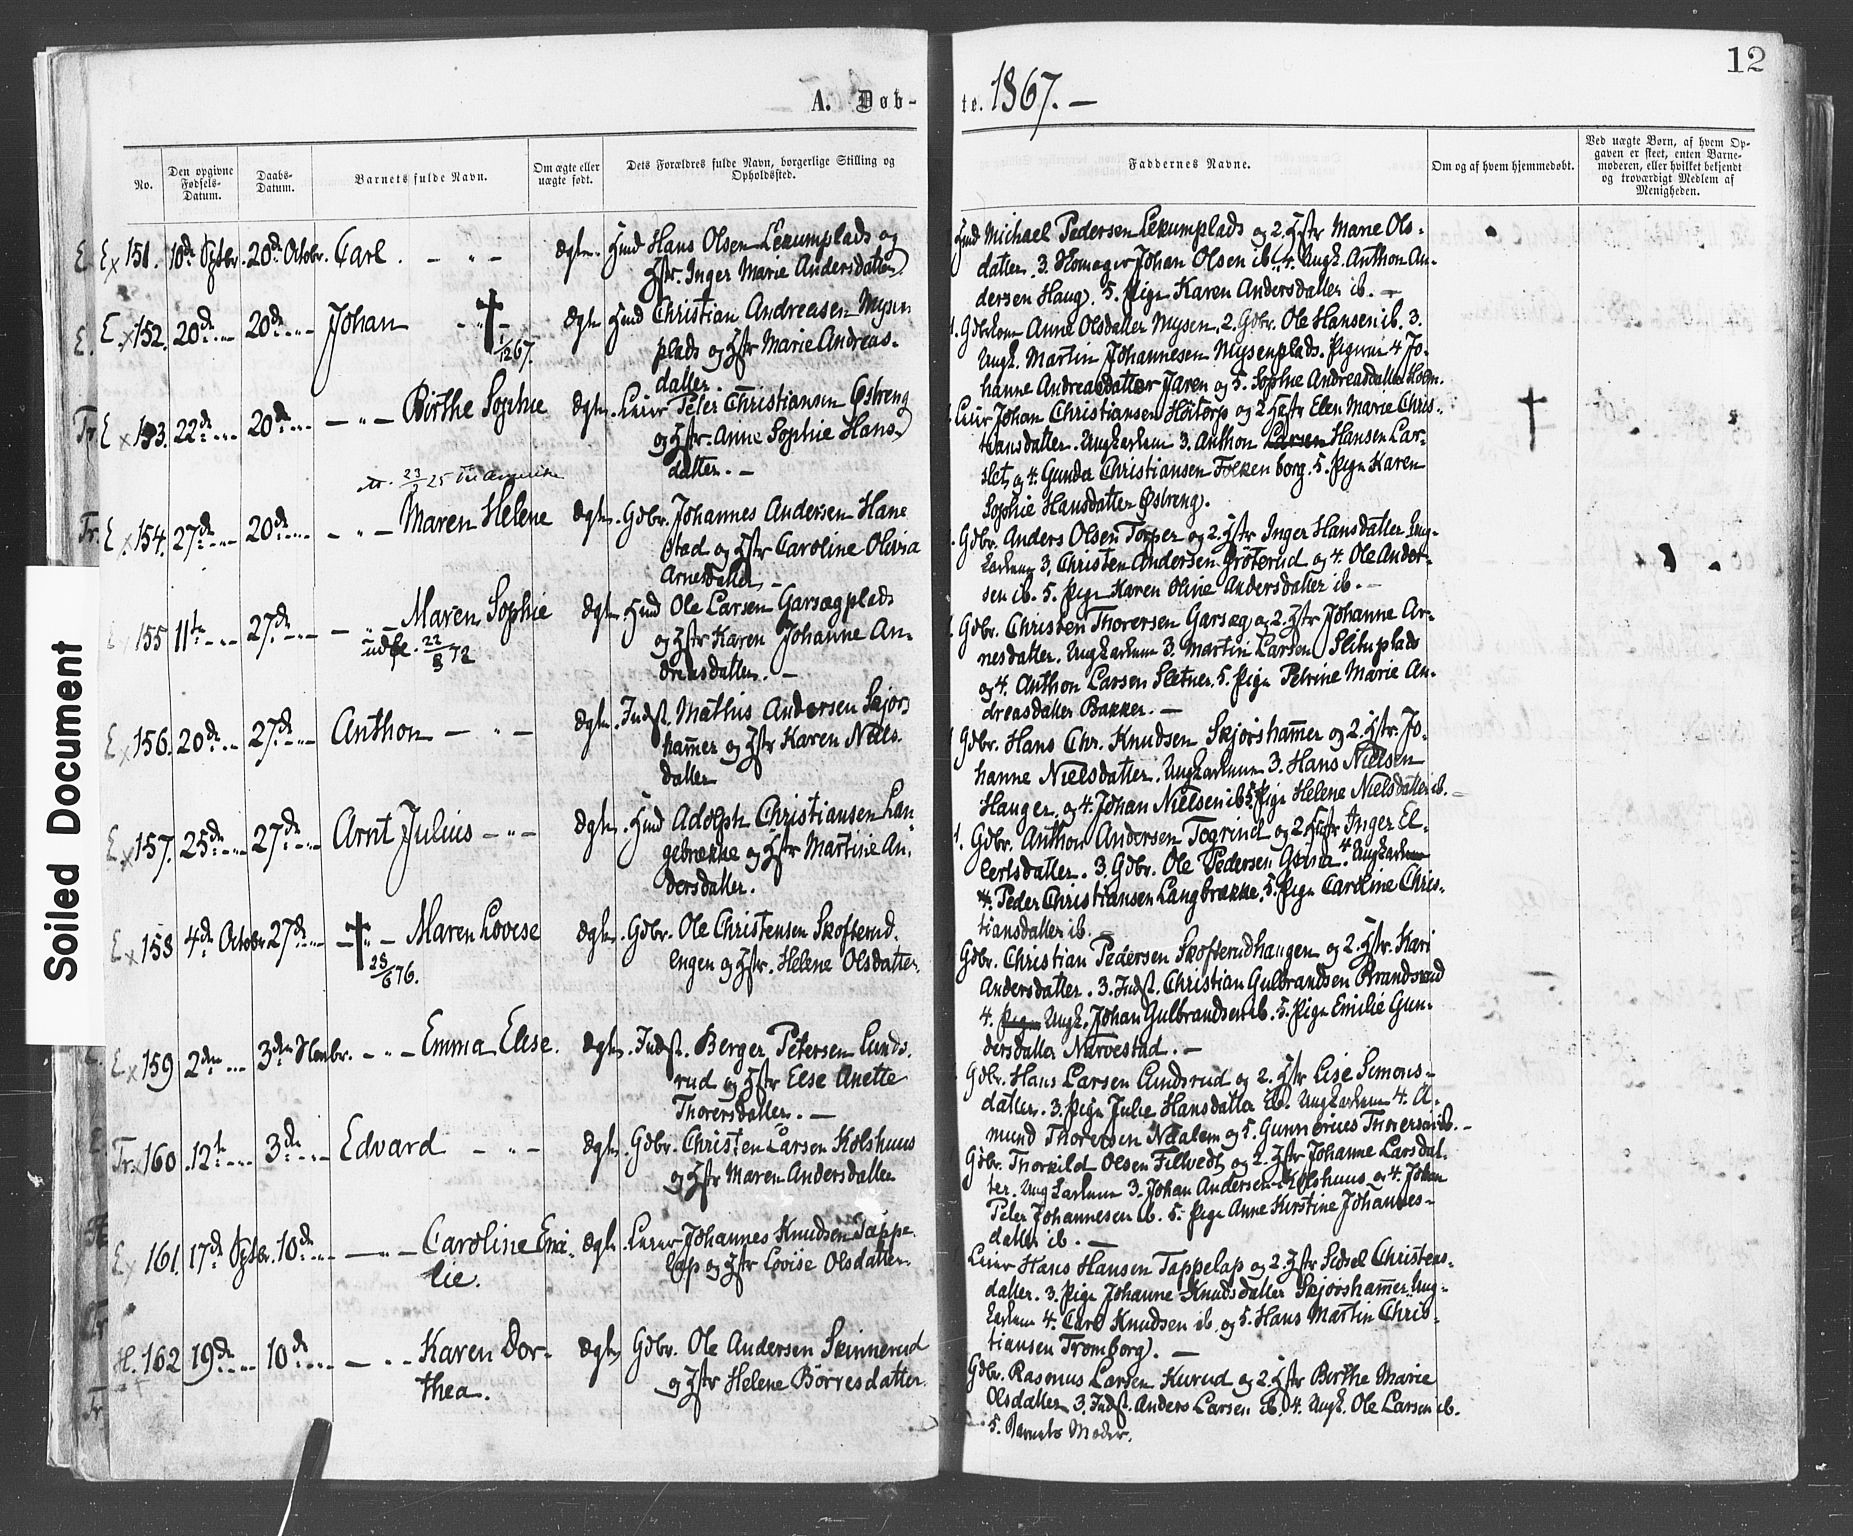 12
A. Døb-
te. 1867. —
No.
Den opgivne Fødsels-Datum.
Daabs-Datum.
Barnets fulde Navn.
Om ægte eller uægte født.
Dets Forældres fulde Navn, borgerlige Stilling og Opholdssted.
Faddernes Navne.
Om og af hvem hjemmedøbt.
Ved uægte Børn, af hvem Opgaven er skeet, enten Barnemoderen, eller hvilket bekjendt og troværdigt Medlem af Menigheden.
E. Ex 151. 10de Septbr. 20de Octobr. Carl. — „ — ægte. Hmd Hans Olsen Lekumplads og
Hstr. Inger Marie Andersdatter.
Hmd Michael Pedersen Lekumplads og 2. Hstr Marie Ols-
datter. 3. Johan Olsen ib. 4. Ungk. Anthon An-
dersen Haug. 5. Pige Karen Andersdatter ib. —
E. Ex 152. 20de „ 20de „ Johan — „ — † 1/12 67. ægte Hmd Christian Andreasen Mysen
plads og Hstr Marie Andreas-
datter.
1. Anne Olsdatter Mysen. 2. Gdbr. Ole Hansen ib. 3.
Ungk. Martin Johannesen Mysenplads. Pigerne 4 Jo-
hanne Andreasdatter Jaren og 5. Sophie Andreasdatter Holm.
Tr. Ex 153. 22de „ 20de „ — „ — Birthe Sophie ægte. Leier Peter Christiansen Østreng
og Hstr. Anne Sophie Hans-
datter. —
Leier Johan Christiansen Høitorp og 2 Hstr Elen Marie Chris-
tiansdatter. Ungkarlene 3. Anthon Larsen Hansen Lar-
slet og 4. Gunder Christiansen Folkenborg. 5. Pige Karen
Sophie Hansdatter Østreng.
Tr. Ex 154. 27de „ 20de „ — „ — Maren Helene ægte. Gdbr. Johannes Andersen Hane
stad og Hstr Caroline Olivia
Arnesdatter. —
Gdbr. Anders Olsen Torper og 2. Hstr Inger Hansdatter Ung-
karlene 3. Christen Andersen Grøterud og 4. Ole Ander-
sen ib. 5. Pige Karen Oline Andersdatter ib. —
155 11te „ 27de „ — „ — Maren Sophie ægte. Hmd Ole Larsen Garsægplads
udfl. 22/3 72
og Hstr Karen Johanne An-
dreasdatter. —
Gdbr. Christen Thorersen Garsæg og 2. Hstr Johanne Ar-
nesdatter. Ungkarlene 3. Martin Larsen Slituplads
og 4. Anthon Larsen Sletner. 5. Pige Petrine Marie An-
dreasdatter Bakker. —
Ex 156. 20de „ 27de „ Anthon — „ — ægte. Indst. Mathis Andersen Skjørs
hammer og Hstr Karen Niels-
datter
Gdbr. Hans Chr. Knudsen Skjørshammer og 2. Hstr. Jo-
hanne Nielsdatter. Ungkarlene 3. Hans Nielsen
Hauger og 4. Johan Nielsen ib 5. Pige Helene Nielsdatter ib. —
Ex 157. 25de „ 27de „ Arnt Julius — „ — ægte. Hmd Adolph Christiansen Lan-
gebrække og Hstr Martine An-
dersdatter.
1. Gdbr. Anthon Andersen Togrind og 2. Hstr Inger El-
lertsdatter. 3. Gdbr. Ole Pedersen 4 Ungkarlene
4. Peder Christiansen Langbrække. 5. Pige Caroline Chris-
tiansdatter ib. —
Ex 158 4de Octobr 27de „ — „ — Maren Lovise † 28/6 76. ægte. Gdbr. Ole Christensen Skofterud.
engen og Hstr. Helene Olsdatter.
Gdbr. Christian Pedersen Skofterudhaugen og 2. Hstr. Kari
Andersdatter. 3. Indst. Christian Gulbrandsen Brandsrud
4. Pige Ungk. Johan Gulbrandsen ib. 5. Pige Emilie Gun-
dersdatter Narvestad. —
Ex 159 2den „ 3den Novbr. — „ — Emma Elise. ægte. Indst. Berger Petersen Lunds-
rud og Hstr Else Anette
Thorersdatter. —
Gdbr. Hans Larsen Lundsrud og 2. Hstr Lise Simons-
datter. 3. Pige Julie Hansdatter ib. Ungkarlene 4. A-
mund Thorersen og 5. Gunnerius Thorersen ib. —
Tr. 160. 12te „ 3de „ Edvard — „ — ægte. Gdbr. Christen Larsen Kolshuus
og Hstr Maren Andersdatter
Gdbr. Thorkild Olsen Fillvedt og 2. Hstr Johanne Larsdat-
ter. Ungkarlene 3. Johan Andersen Kolshuus og 4. Johan
Peter Johannesen ib. 5. Pige Anne Kirstine Johannes-
datter ib. —
Ex 161. 17de Septbr. 10de „ — „ — Caroline Emi- ægte. Leier Johannes Knudsen Tappe
lie.
lap og Hstr Lovise Olsdatter.
Leier Hans Hansen Tappelap og 2. Hstr Sidsel Christens-
datter. 3. Pige Johanne Knudsdatter Skjørshammer. Ung-
karlene 4. Carl Knudsen ib. og 5. Hans Martin Chris-
tiansen Tromborg. —
H. 162 19de „ 10de „ — „ — Karen Dor- ægte. Gdbr. Ole Andersen Skinnerud
thea.
og Hstr Helene Børresdatter.
Gdbr. Rasmus Larsen Kurud og 2. Hstr Berthe Marie
Olsdatter 3. Indst. Anders Larsen ib. 4. Ungk. Ole Larsen ib.
5. Barnets Moder.
Soiled Document